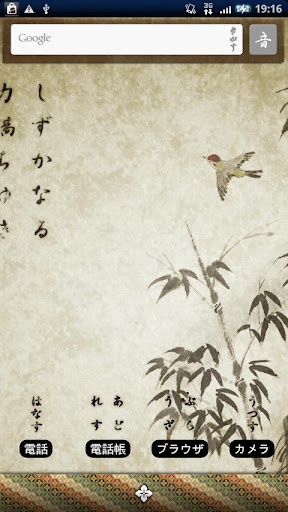 3G
19:16
Google
さがす
音
しずかなる
はなす
あど
れす
ぶら
うざ
うつす
電話
電話帳
ブラウザ
カメラ